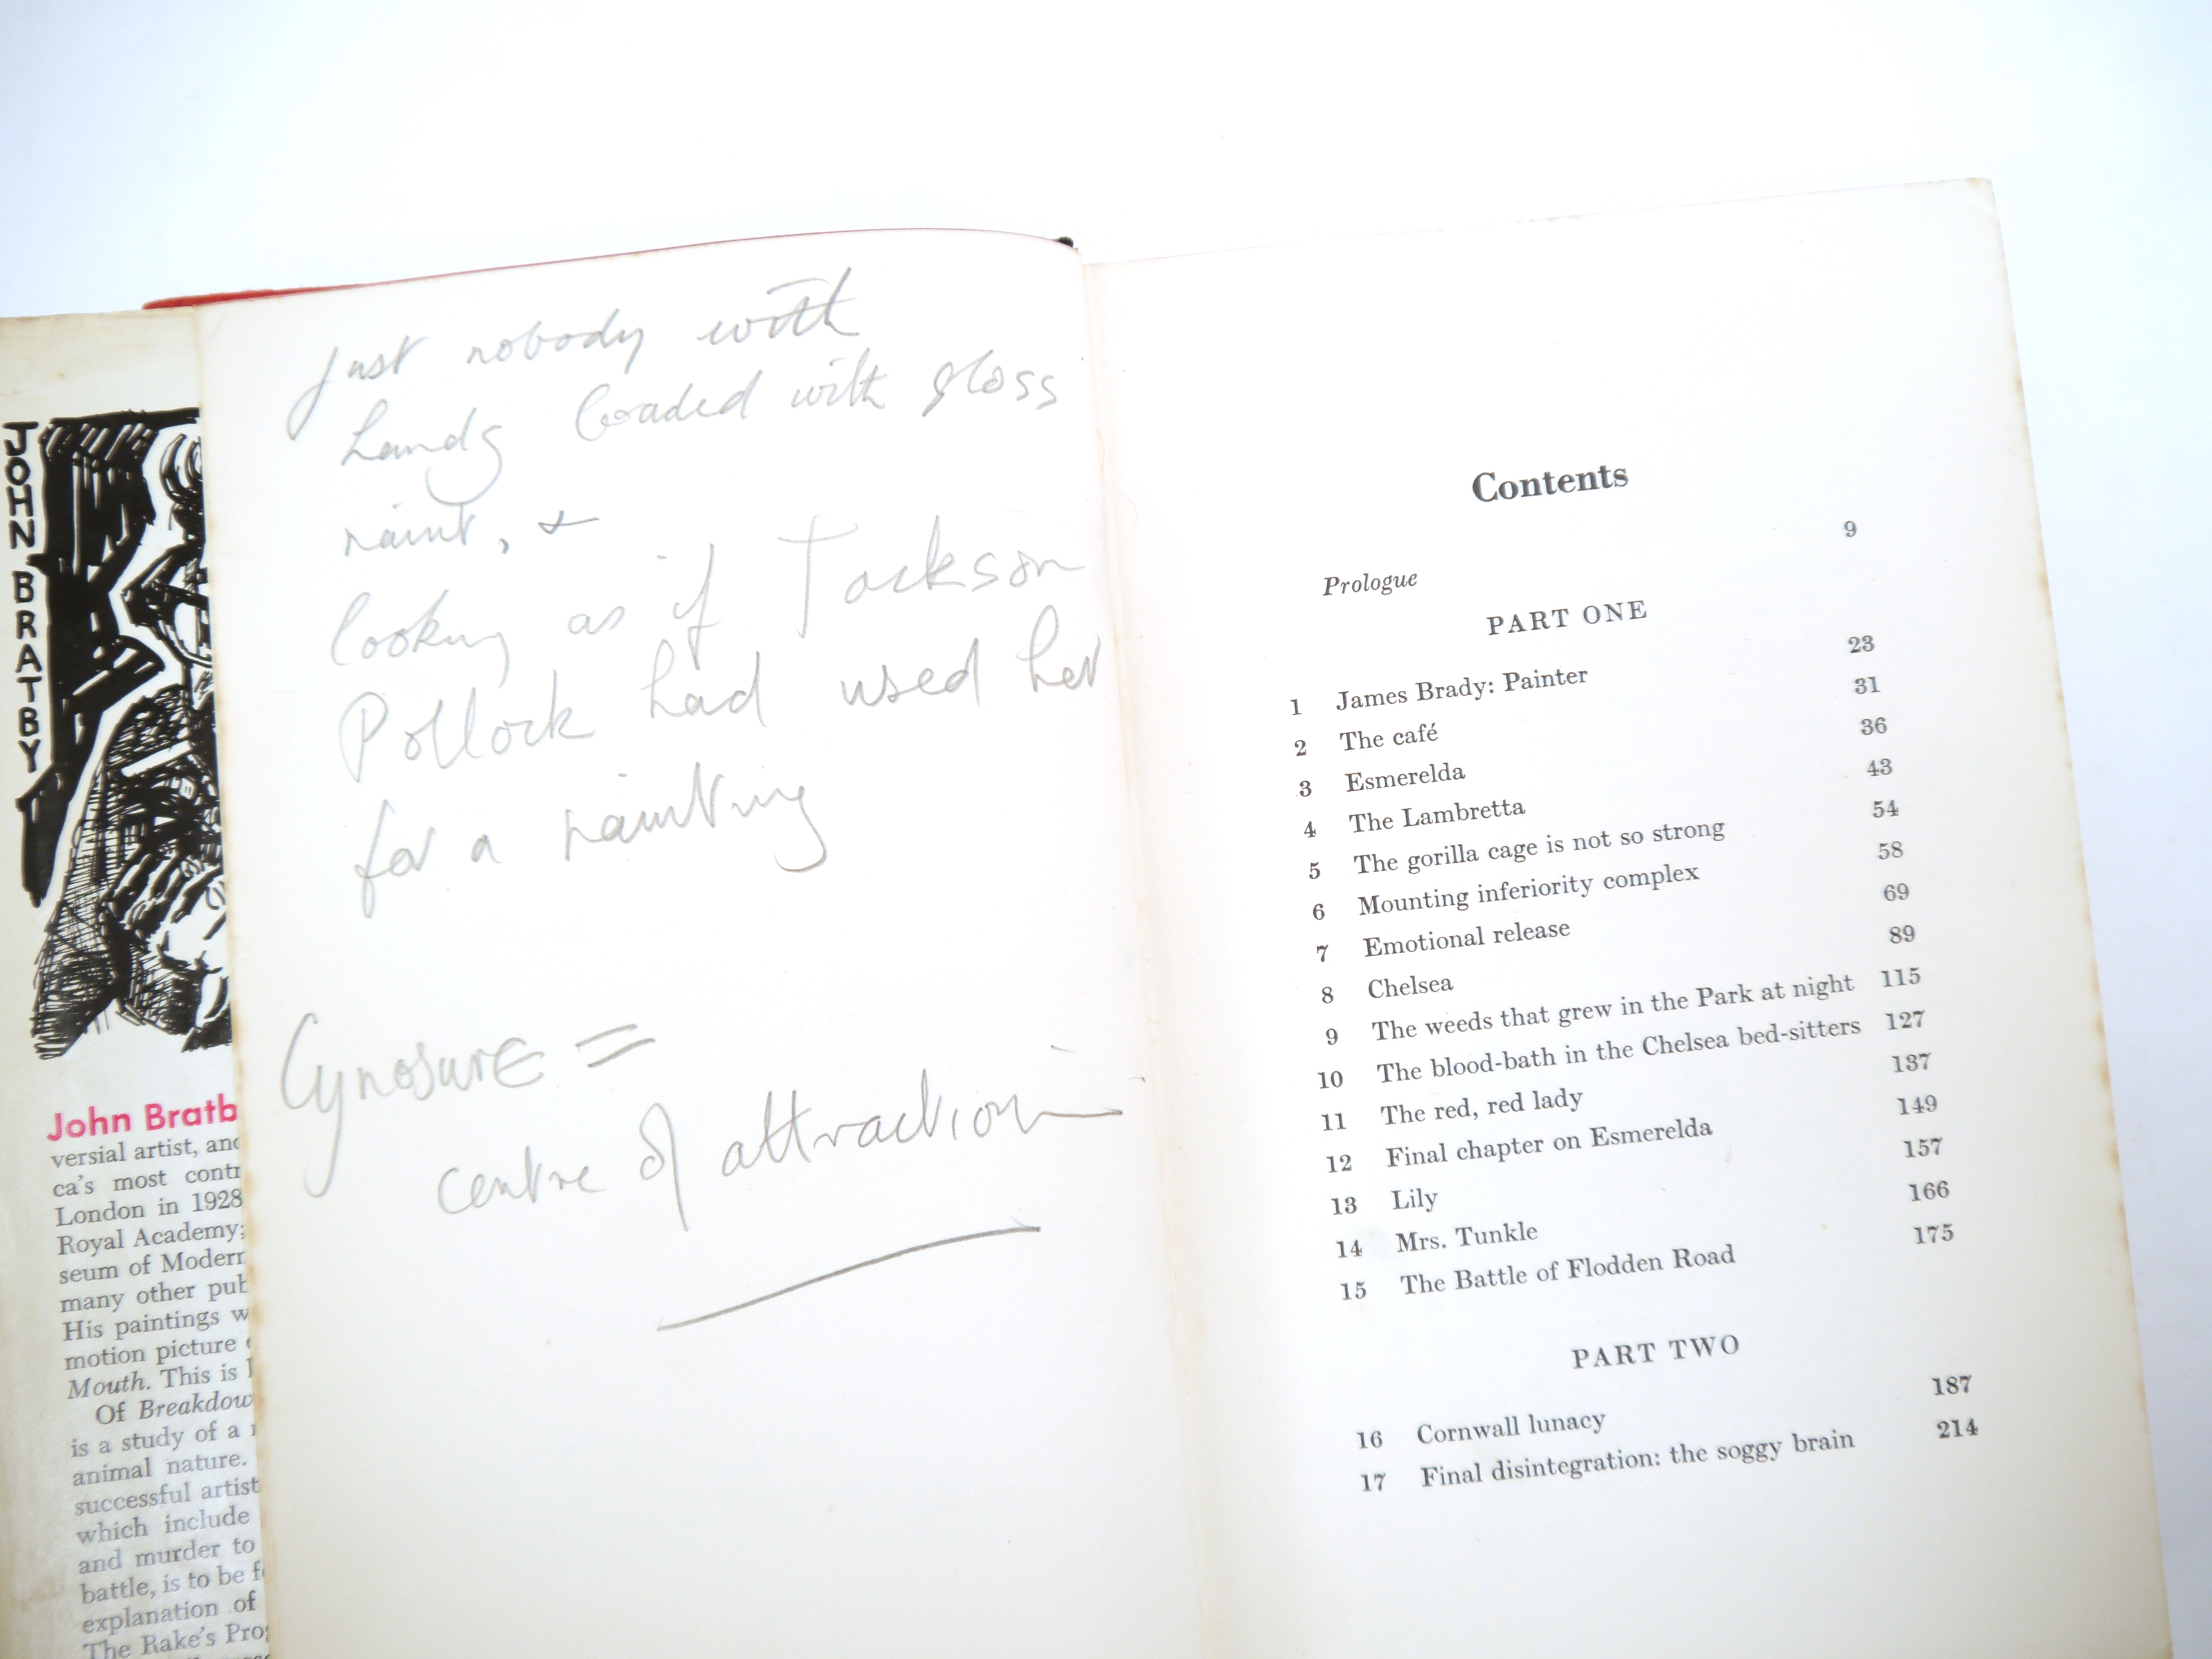 JOHN BRATBY
John Bratb
versial artist, and
ca's most contr
London in 1928
Royal Academy;
seum of Modern
many other pub
His paintings w
motion picture
Mouth. This is
Of Breakdow
is a study of a
animal nature.
successful artist
which include
and murder to
battle, is to be f
explanation of
The Rake's Prog
just nobody with
hands loaded with gloss
paint, &
looking as if Jackson
Pollock had used her
for a painting
Cynosure =
centre of attraction
Contents
Prologue 9
PART ONE
1 James Brady: Painter 23
2 The café 31
3 Esmerelda 36
4 The Lambretta 43
5 The gorilla cage is not so strong 54
6 Mounting inferiority complex 58
7 Emotional release 69
8 Chelsea 89
9 The weeds that grew in the Park at night 115
10 The blood-bath in the Chelsea bed-sitters 127
11 The red, red lady 137
12 Final chapter on Esmerelda 149
13 Lily 157
14 Mrs. Tunkle 166
15 The Battle of Flodden Road 175
PART TWO
16 Cornwall lunacy 187
17 Final disintegration: the soggy brain 214